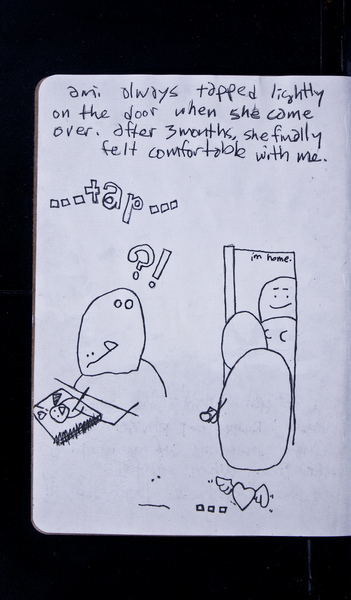 ami always tapped lightly
on the door when she came
over. after 3 months, she finally
felt comfortable with me.
...tap...
?!
im home.
...